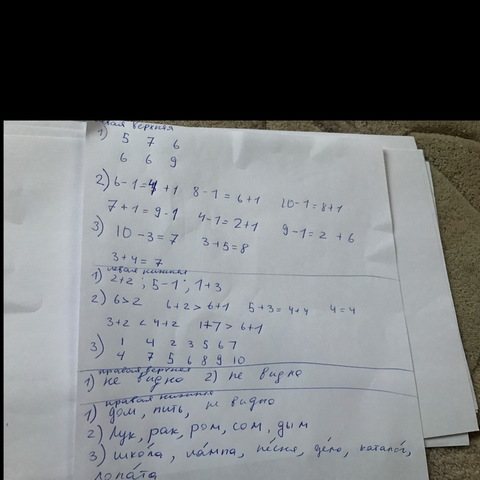 верхняя
1) 5 7 6
6 6 9
2) 6-1=4+1 8-1=6+1 10-1=8+1
7+1=9-1 4-1=2+1 9-1=2+6
3) 10-3=7 3+5=8
3+4=7
левая нижняя
1) 2+2; 5-1; 1+3
2) 6>2 6+2>6+1 5+3=4+4 4=4
3+2<4+2 1+7>6+1
3) 1 4 2 3 5 6 7
4 7 5 6 8 9 10
правая верхняя
1) не видно 2) не видно
правая нижняя
1) дом, пить, не видно
2) лук, рак, ром, сом, дым
3) шко́ла, ла́мпа, пе́сня, де́ло, катало́г,
лопа́та